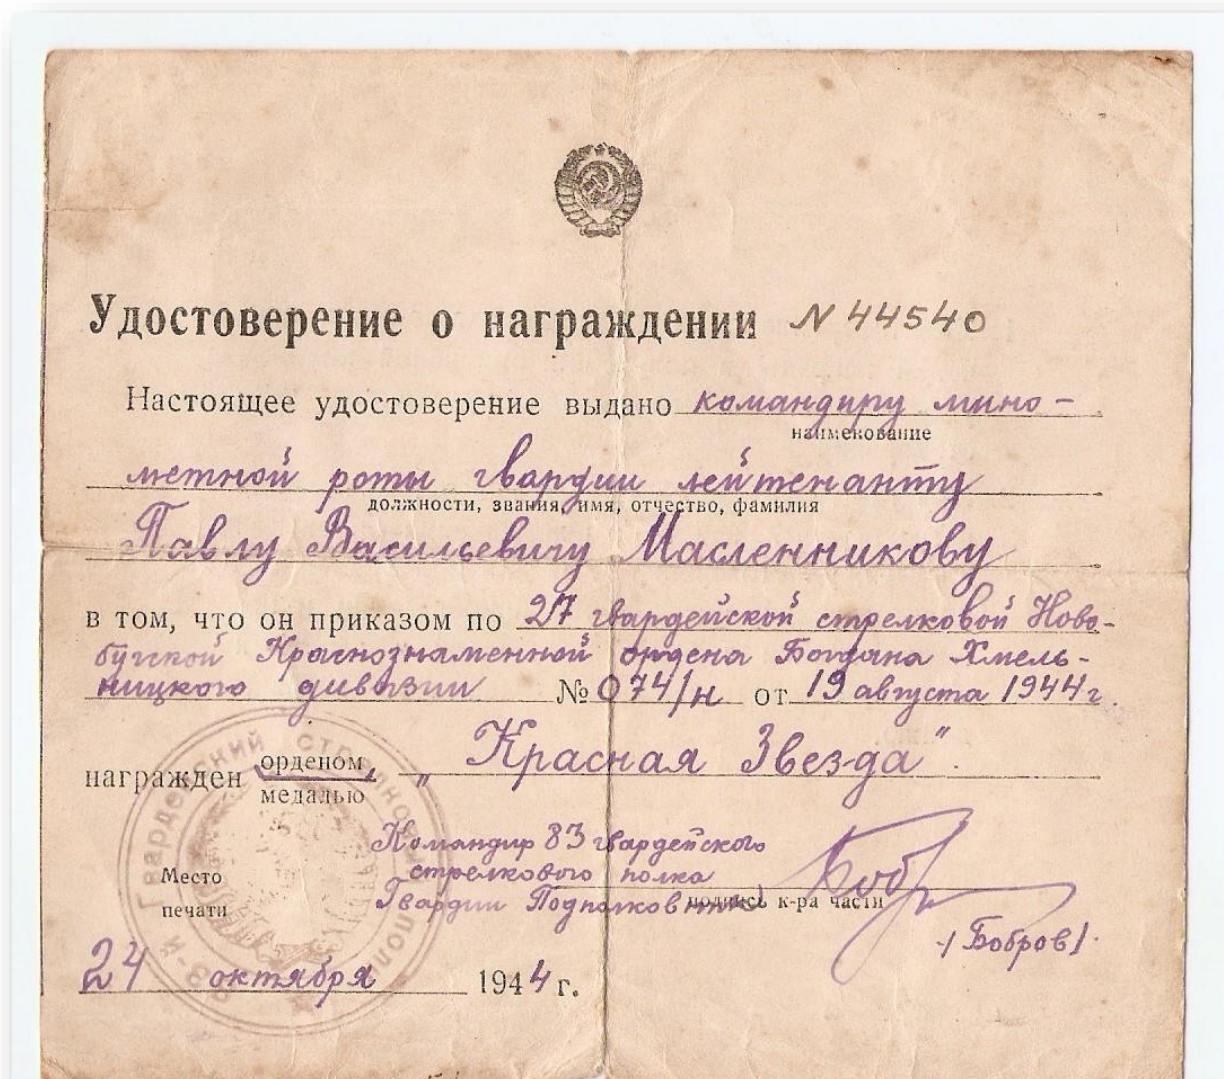 Удостоверение о награждении N 44540
Настоящее удостоверение выдано командиру мино-
наименование
метной роты гвардии лейтенанту
должности, звания, имя, отчество, фамилия
Павлу Васильевичу Масленникову
в том, что он приказом по 27 гвардейской стрелковой Ново-
бугской Краснознаменной ордена Богдана Хмель-
ницкого дивизии № 074/н от 19 августа 1944 г.
награжден орденом „Красная Звезда".
медалью
Командир 83 гвардейского
стрелкового полка
Гвардии Подполковник
подпись к-ра части
Место
печати
/Бобров/.
24 октября 1944 г.
83-й Гвардейский стрелковый полк